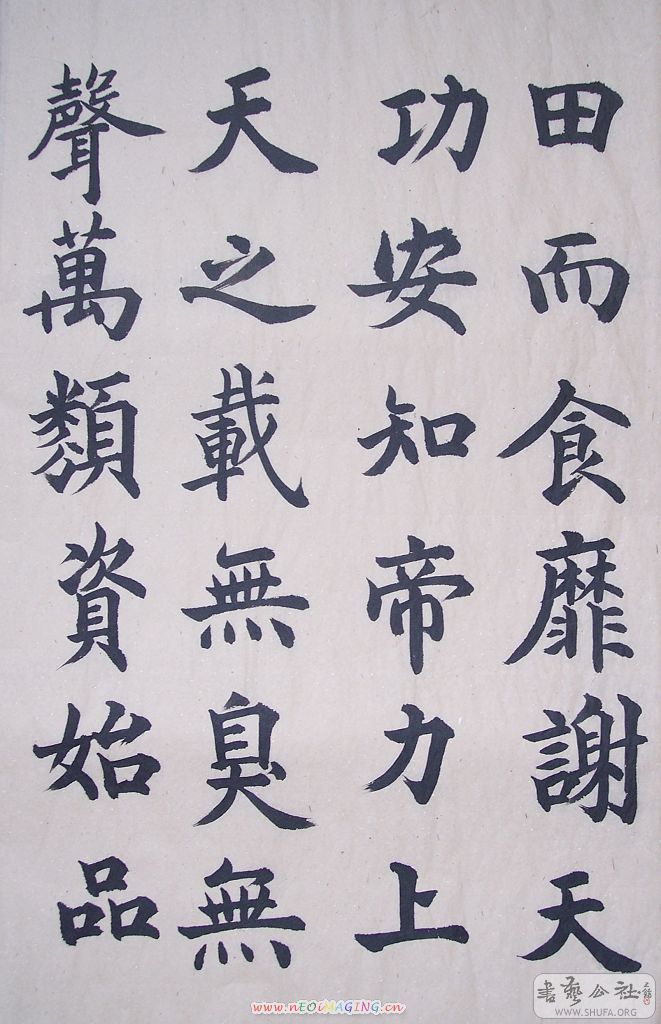 田而食靡謝天
功安知帝力上
天之載無臭無
聲萬類資始品
書藝公社
WWW.SHUFA.ORG
www.nEOiMAGING.cn